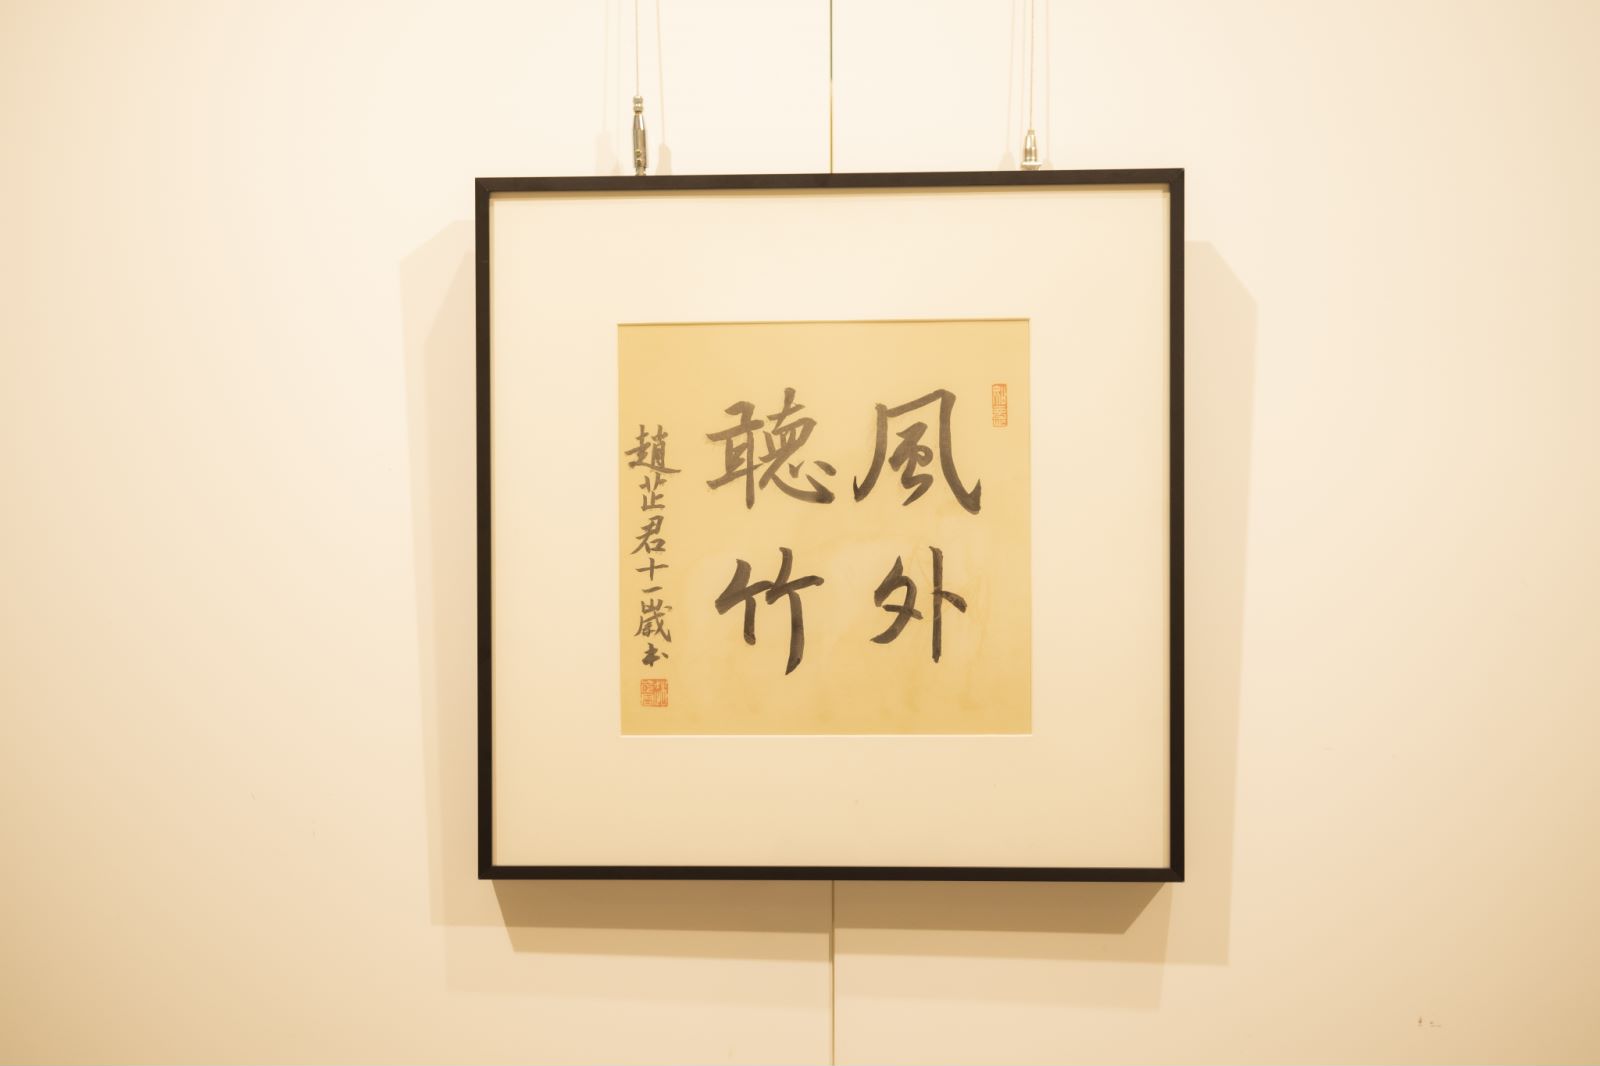 風外
聽竹
趙芷君十一歲书